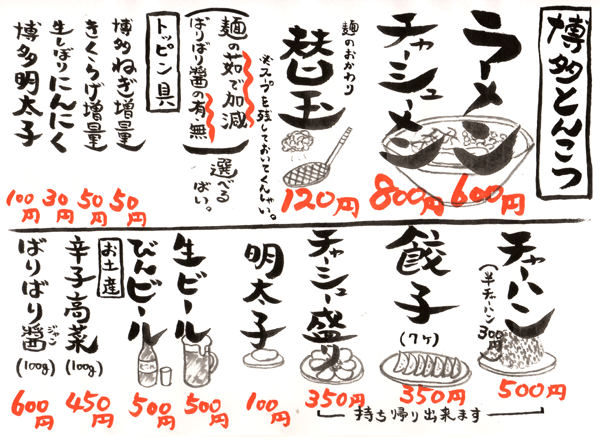 博多とんこつ
ラーメン
600円
チャーシューメン
800円
麺のおかわり
替玉
※スープを残しておいてくんしゃい。
120円
麺の茹で加減
ばりばり醤の有・無
選べるばい。
トッピン具
博多ねぎ増量
50円
きくらげ増量
50円
生しぼりにんにく
30円
博多明太子
100円
チャーハン
(半チャーハン 300円)
500円
餃子
(7ヶ)
350円
チャーシュー盛り
350円
持ち帰り出来ます
明太子
100円
生ビール
500円
びんビール
500円
お土産
辛子高菜
(100g)
450円
ばりばり醤
ジャン
(100g)
600円